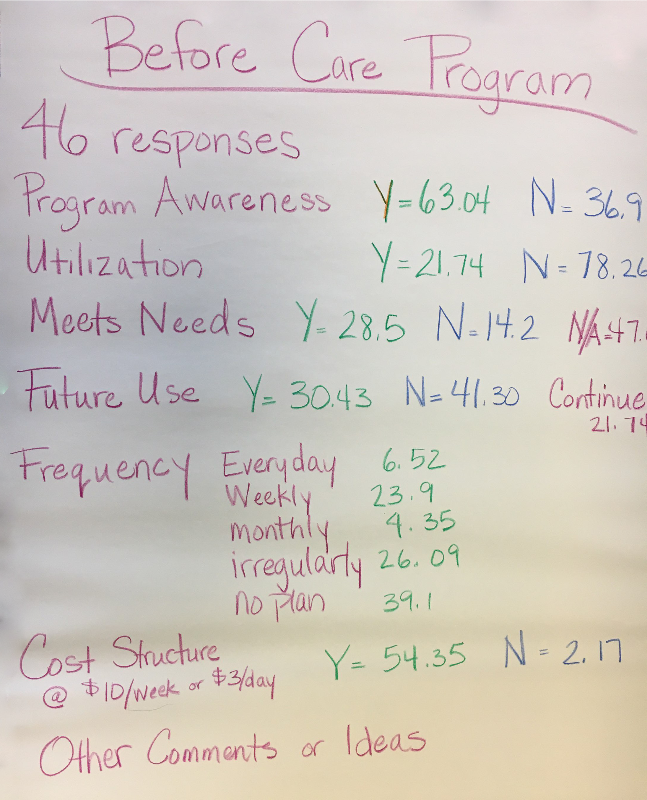 Before Care Program
46 responses
Program Awareness Y=63.04 N= 36.9
Utilization Y=21.74 N= 78.26
Meets Needs Y= 28.5 N=14.2 N/A=47.
Future Use Y= 30.43 N=41.30 Continue
21.74
Frequency Everyday 6.52
Weekly 23.9
monthly 4.35
irregularly 26.09
no plan 39.1
Cost Structure Y= 54.35 N = 2.17
@ $10/week or $3/day
Other Comments or Ideas